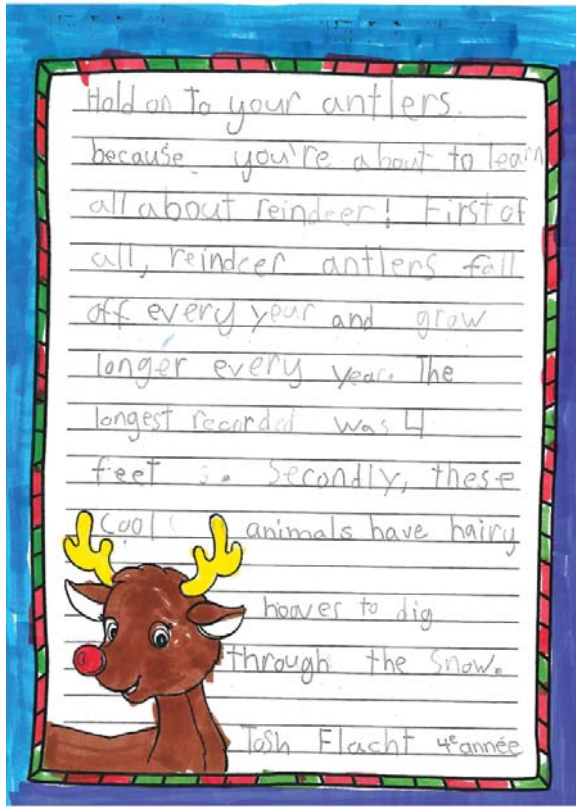 Hold on to your antlers.
because you're about to learn
all about reindeer! First of
all, reindeer antlers fall
off every year and grow
longer every year. The
longest recorded was 4
feet . Secondly, these
cool animals have hairy
hooves to dig
through the snow.
Tosh Flacht 4e année